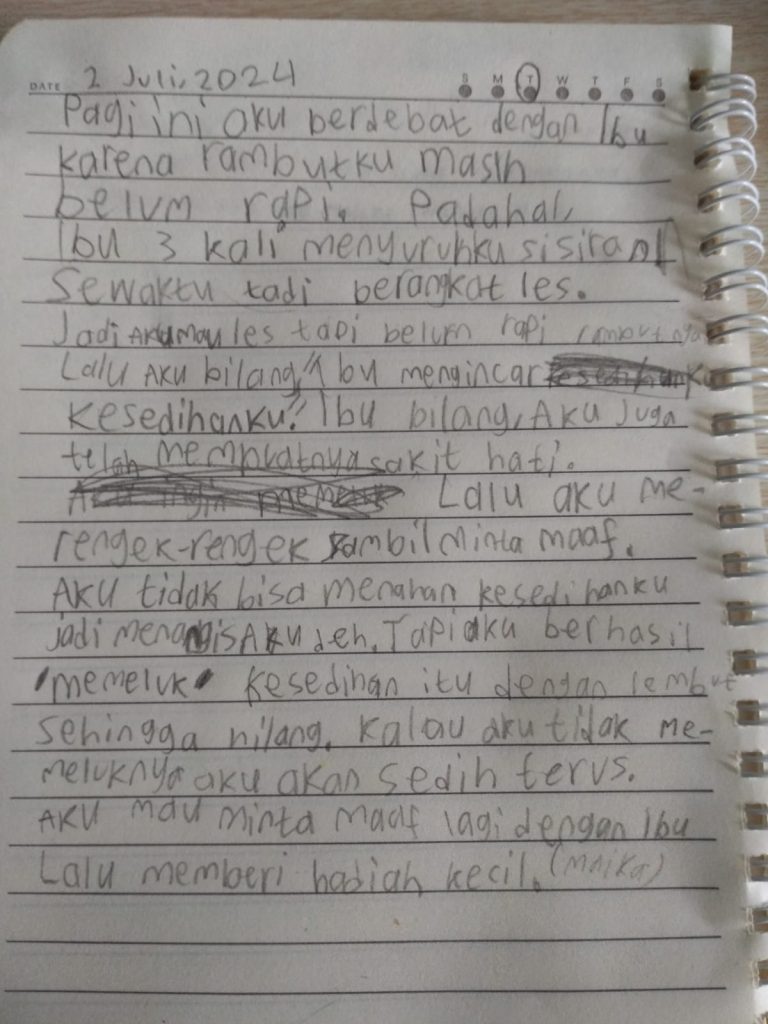 DATE 2 Juli, 2024 S M T W T F S
Pagi ini aku berdebat dengan Ibu
karena rambutku masih
belum rapi. Padahal,
Ibu 3 kali menyuruhku sisiran
Sewaktu tadi berangkat les.
Jadi Aku mau les tapi belum rapi rambutnya
Lalu Aku bilang, "Ibu mengincar
kesedihanku!" Ibu bilang, Aku Juga
telah membuatnya sakit hati.
Lalu aku me-
rengek-rengek sambil Minta maaf.
Aku tidak bisa menahan kesedihanku
jadi menangis Aku deh. Tapi aku berhasil
"memeluk" kesedihan itu dengan lembut
sehingga hilang. Kalau aku tidak me-
meluknya aku akan sedih terus.
Aku mau minta maaf lagi dengan Ibu
Lalu memberi hadiah kecil. (Maika)